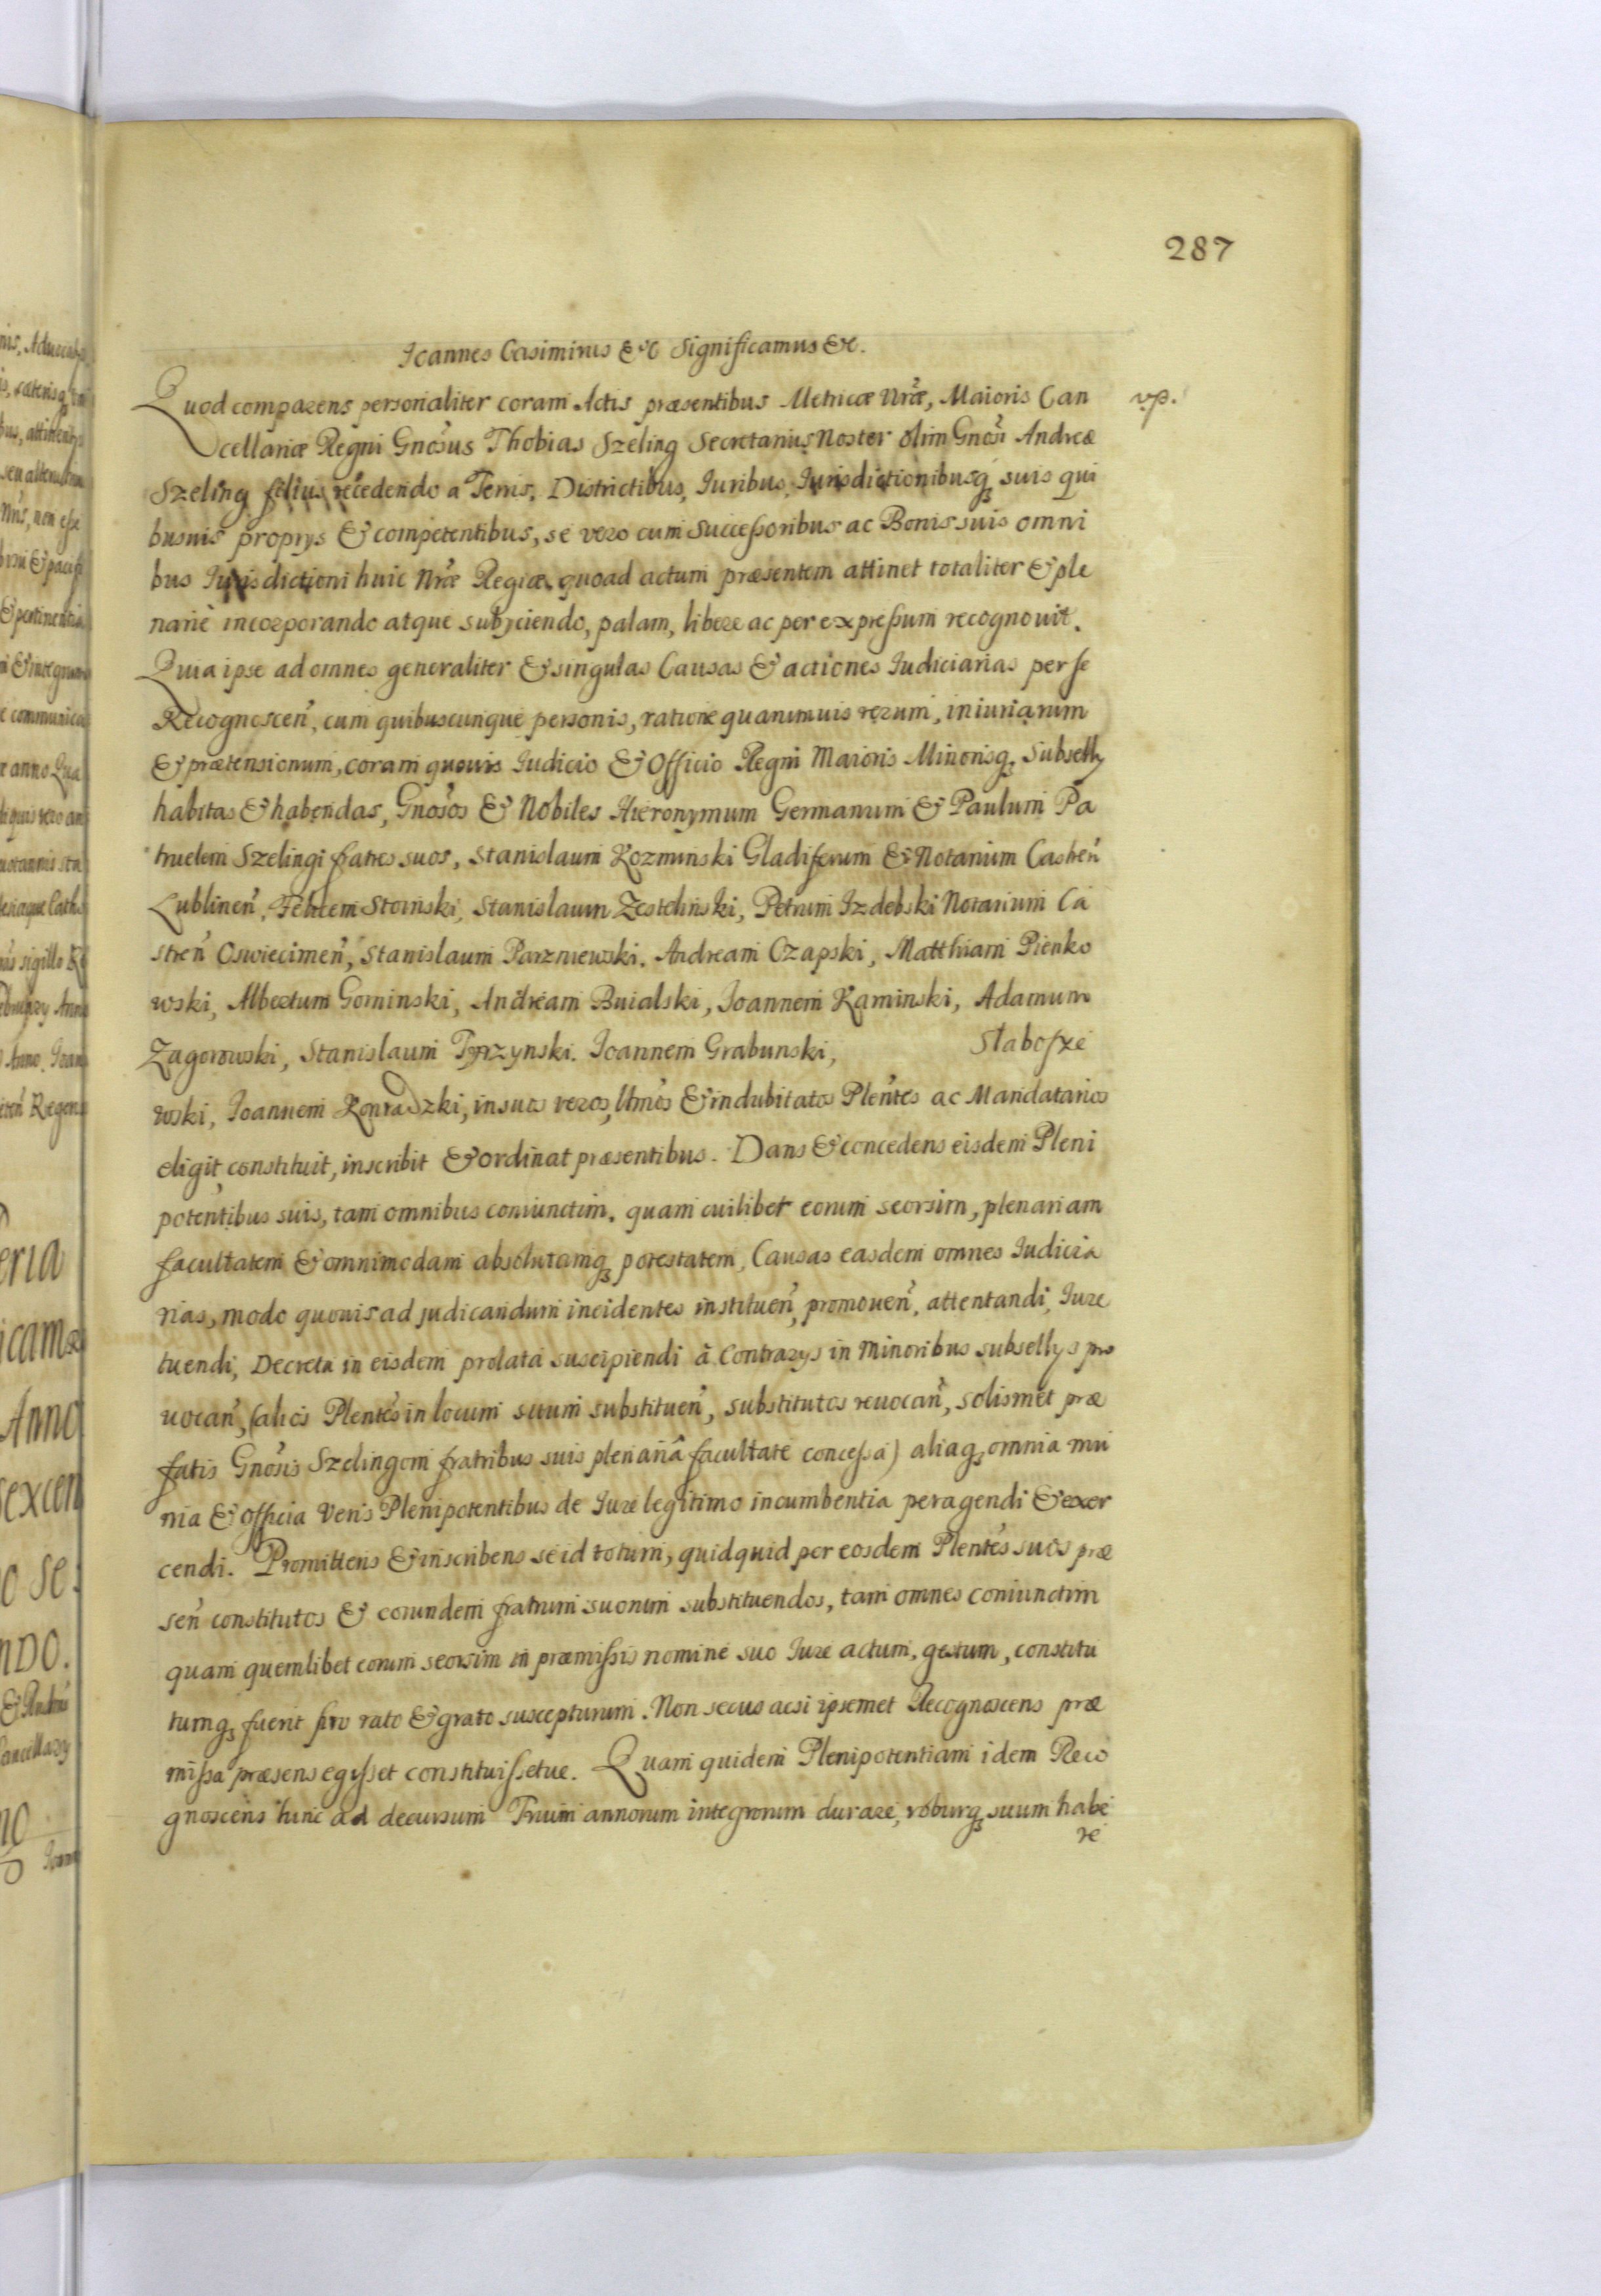 287
Ioannes Casimirus &c Significamus &c.
Quod comparens personaliter coram Actis præsentibus Metricæ Nræ, Maioris Can
vp.
cellariæ Regni Gnosus Thobias Szeling Secretarius Noster olim Gnosi Andreæ
Szeling filius recedendo a Terris, Districtibus, Iuribus, Iurisdictionibusq suis qui
busuis proprys & competentibus, se vero cum Successoribus ac Bonis suis omni
bus Iurisdictioni huic Nræ Regiæ, quoad actum præsentem attinet totaliter & ple
nariè incorporando atque subyciendo, palam, libere ac per expressum recognouit.
Quia ipse ad omnes generaliter & singulas Causas & actiones Iudiciarias per se
Recognoscen, cum quibuscunque personis, ratione quarumuis rerum, iniuriarum
& prætensionum, coram quouis Iudicio & Officio Regni Maioris Minorisq Subselly
habitas & habendas, Gnosos & Nobiles Hieronymum Germanum & Paulum Pa
truelem Szelingi fratres suos, Stanislaum Kozminski Gladiferum & Notarium Castren
Lublinen, Felicem Stoinski, Stanislaum Zesteliński, Petrum Izdebski Notarium Ca
stren Oswiecimen, Stanislaum Parzniewski, Andream Czapski, Matthiam Pienko
wski, Albertum Gominski, Andream Buialski, Ioannem Kaminski, Adamum
Zagorowski, Stanislaum Tyrzynski, Ioannem Grabunski, Stabosze
wski, Ioannem Konradzki, in suos veros, lttmos & indubitatos Plentes ac Mandatarios
eligit, constituit, inscribit & ordinat præsentibus. Dans & concedens eisdem Pleni
potentibus suis, tam omnibus coniunctim, quam cuilibet eorum seorsim, plenariam
facultatem & omnimodam absolutamq potestatem, Causas easdem omnes Iudicia
rias, modo quouis ad judicandum incidentes instituen, promouen, attentandi, Iure
tuendi, Decreta in eisdem prolata suscipiendi à Contrarys in Minoribus subsellys pro
uocan, (alios Plentes in locum suum substituen, substitutos reuocan, solismet præ
fatis Gnosis Szelingom fratribus suis plenariâ facultate concessa) aliaq omnia mu
nia & officia Veris Plenipotentibus de Iure legitimo incumbentia peragendi & exer
cendi. Promittens & inscribens se id totum, quidquid per eosdem Plentes suos præ
sen constitutos & eorundem fratrum suorum substituendos, tam omnes coniunctim
quam quemlibet eorum seorsim in præmissis nomine suo Iure actum, gestum, constitu
tumq fuerit pro rato & grato suscepturum. Non secus acsi ipsemet Recognoscens præ
missa præsens egisset constituissetue. Quam quidem Plenipotentiam idem Reco
gnoscens hinc ad decursum Trium annorum integrorum durare, roburq suum habe
re